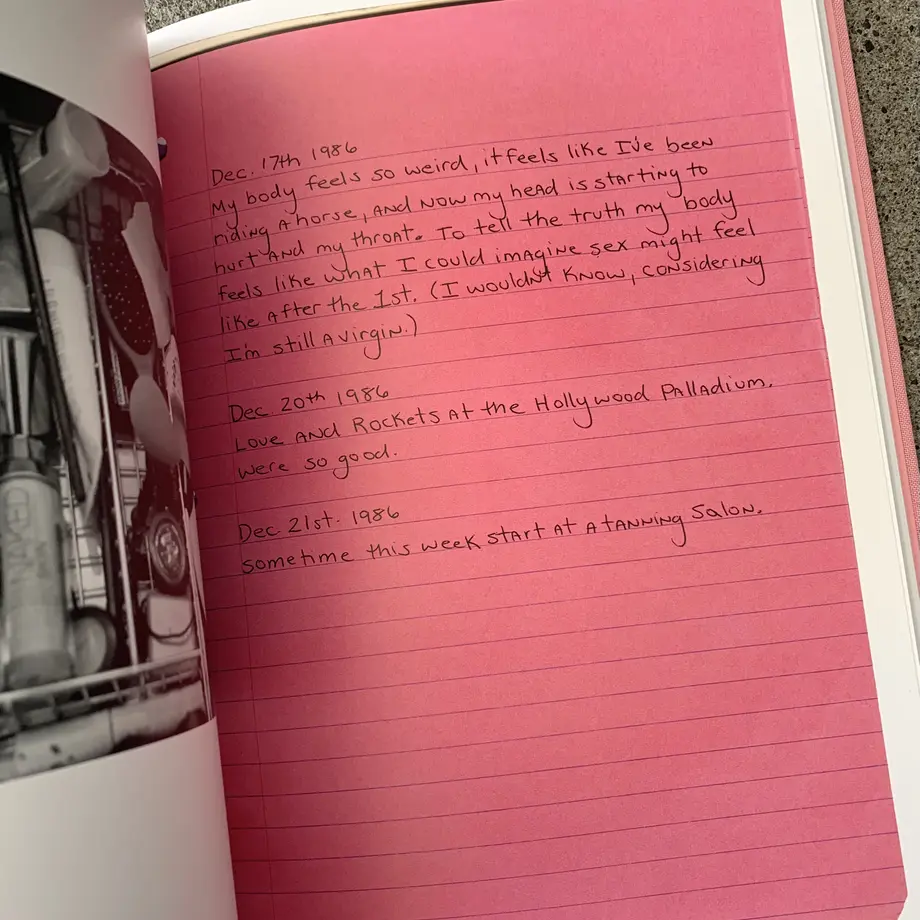 Dec. 17th 1986
My body feels so weird, it feels like I've been
riding a horse, and now my head is starting to
hurt and my throat. To tell the truth my body
feels like what I could imagine sex might feel
like after the 1st. (I wouldn't know, considering
I'm still a virgin.)
Dec 20th 1986
Love and Rockets at the Hollywood Palladium.
were so good.
Dec 21st. 1986
sometime this week start at a tanning salon.